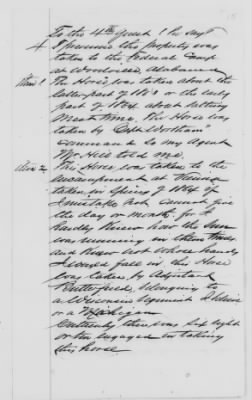 To the 4th quest he says
4 I presume this property was
taken to the Federal Camp
at Woodville Alabama
Item 1 The Horse was taken about the
latter part of 1863 or the early
part of 1864 about killing
Meat time. The Horse was
taken by Capt
command so my Agent
Mr Hill told me.
Item 2 The Horse was taken to the
encampment at
taken in Spring of 1864 if
I mistake not cannot give
the day or month. for I
hardly knew how the Sun
was running in them times
and knew not whose hands
I would fall in this Horse
was taken by Adjutant
Butterfield, belonging to
a Wisconsin Regiment I believe
or a Michigan
Certainly there was six eight
or ten engaged in taking
this horse